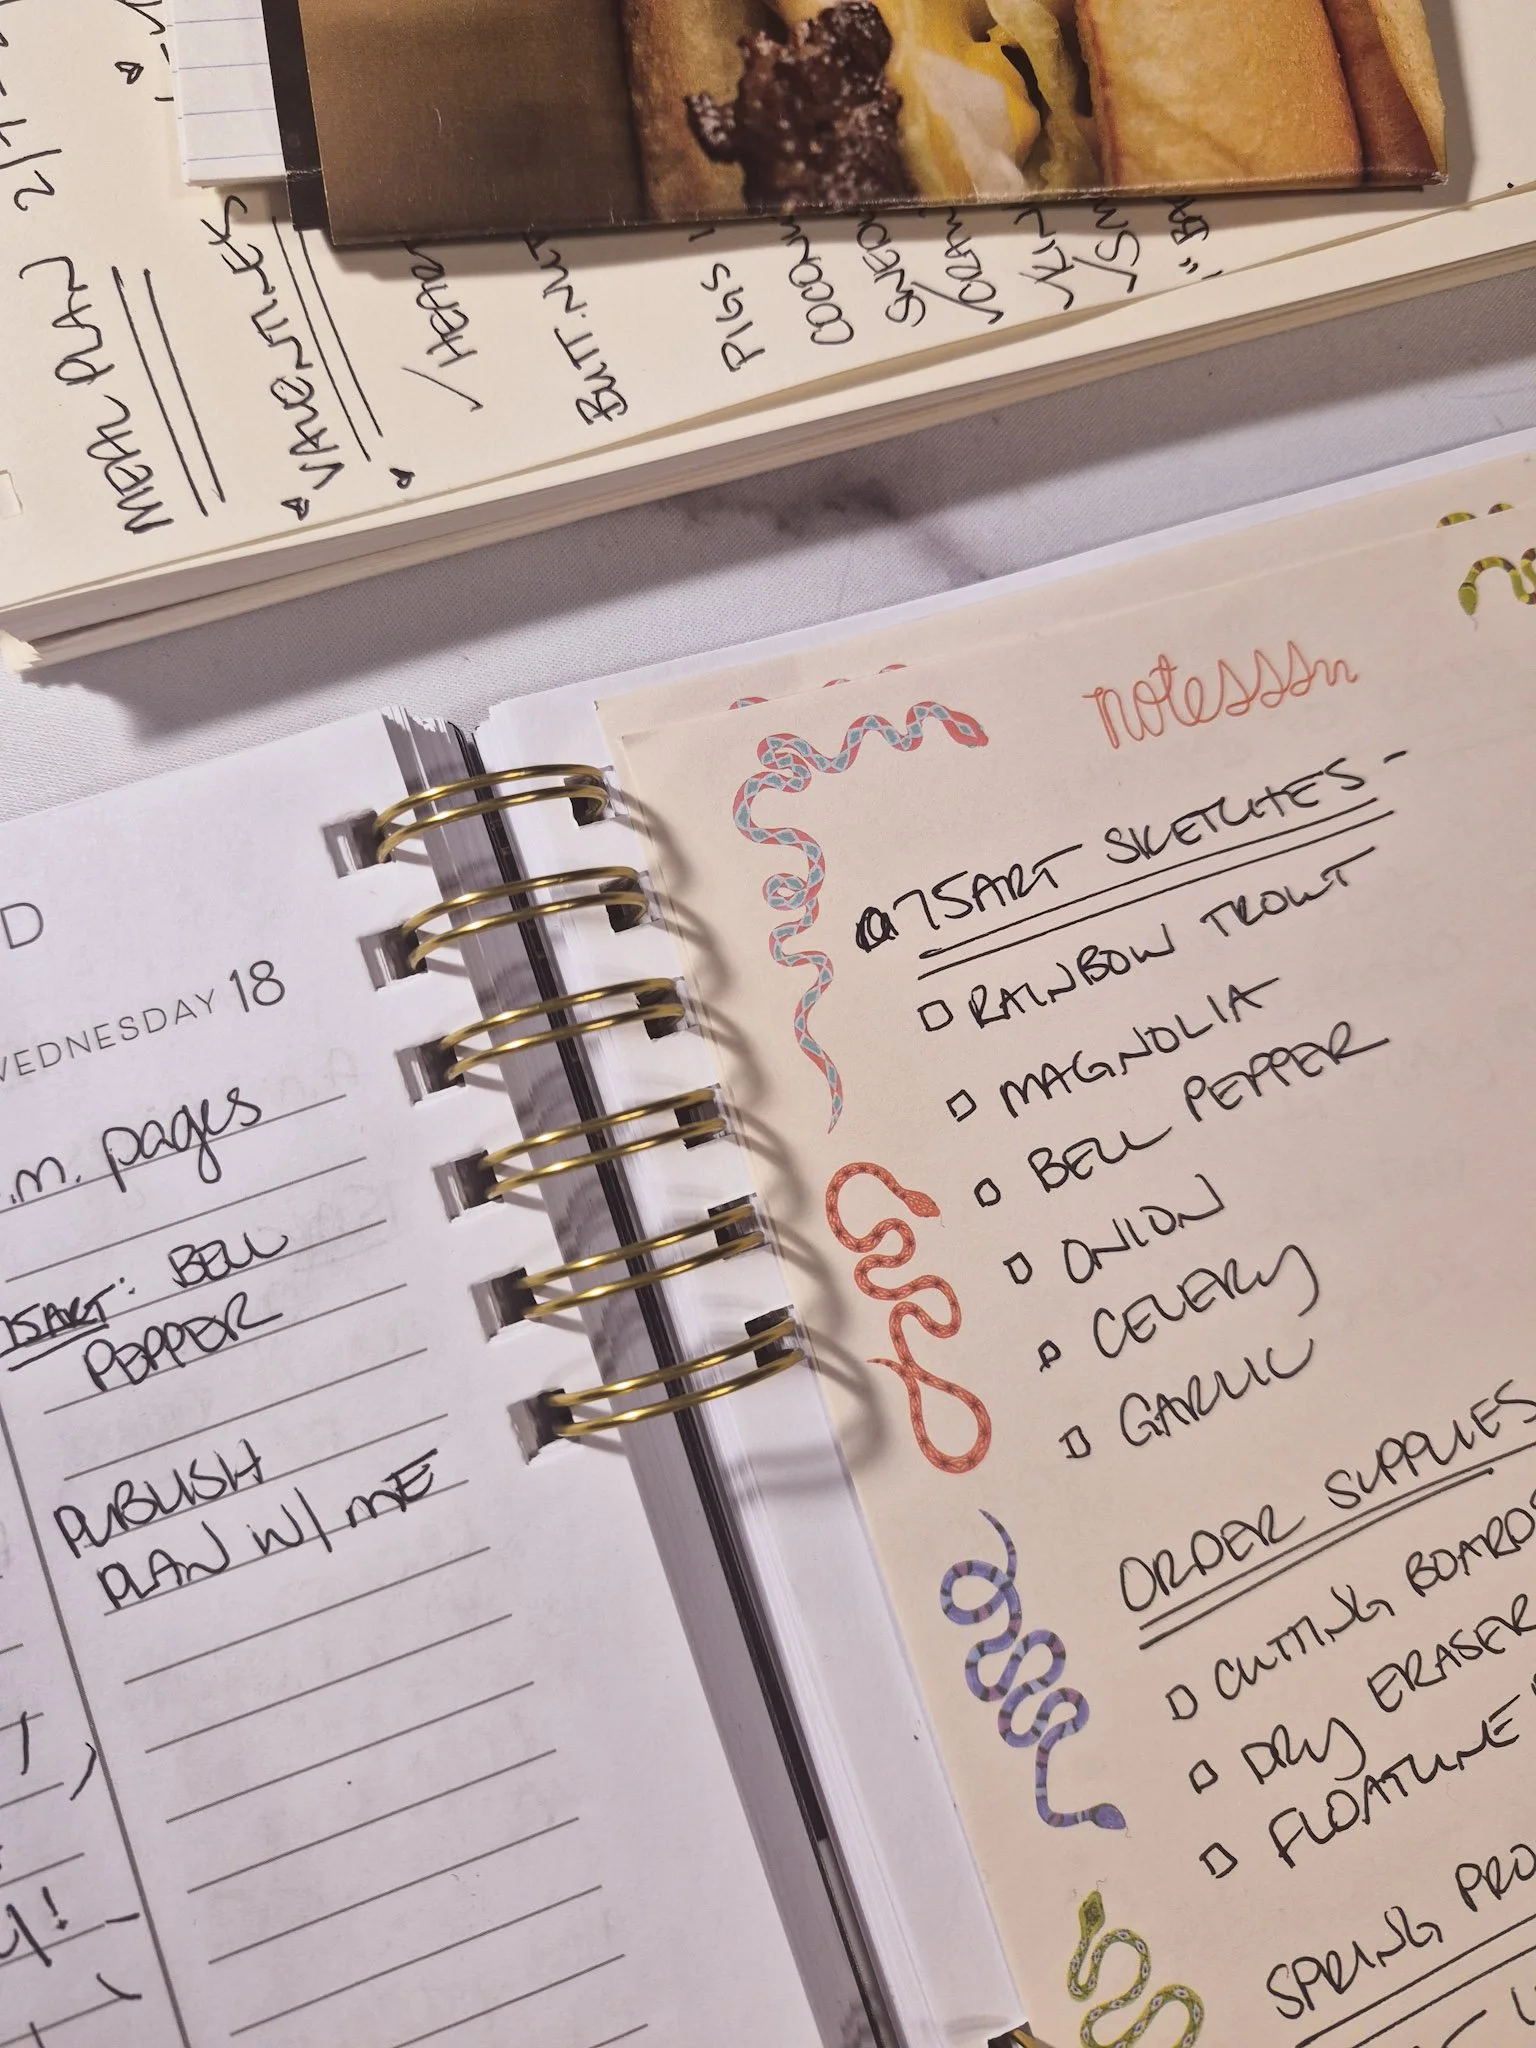 MEAL PLAN 2/1-
VALENTINES
✓ HEAR
BUTT. NUT
PIGS
COCONU
SWEDI
✓CRAN
✓KIN
✓SM
"BA
D
WEDNESDAY 18
.m. pages
75ART: BELL
PEPPER
PUBLISH
PLAN W/ ME
notesssss
75ART SKETCHES -
□ RAINBOW TROUT
□ MAGNOLIA
□ BELL PEPPER
□ ONION
□ CELERY
□ GARLIC
ORDER SUPPLIES
□ CUTTING BOARDS
□ DRY ERASER
□ FLOATLINE
SPRING PRO